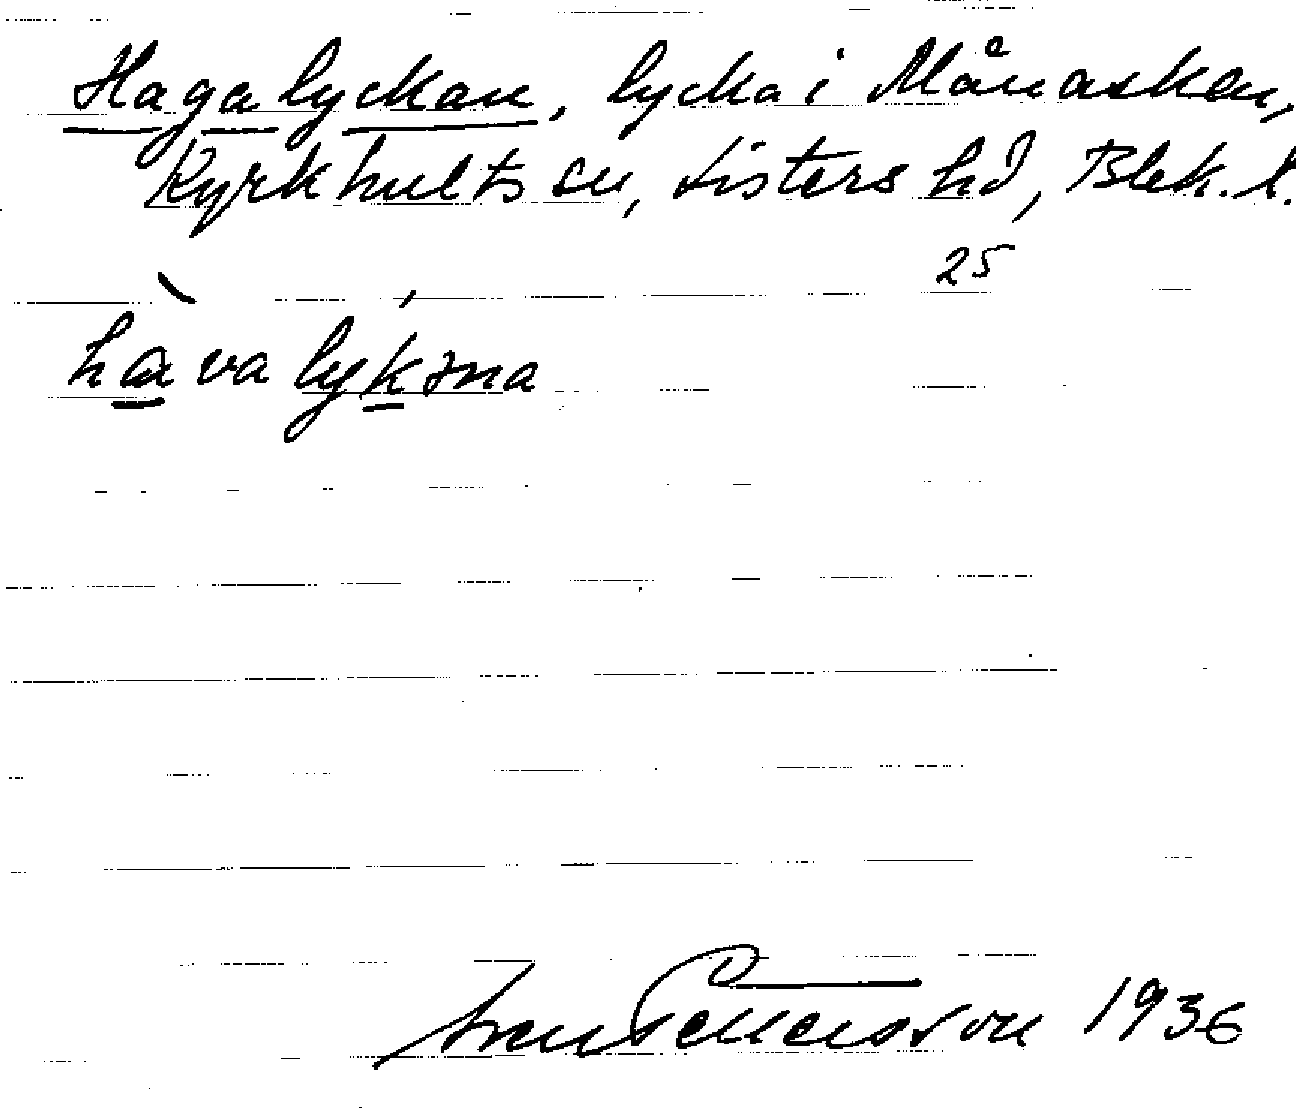 Hagalyckan, lycka i Månasken,
Kyrkhults sn, Listers hd, Blek. l.
25
hàvalykəna
Sven Benson 1936